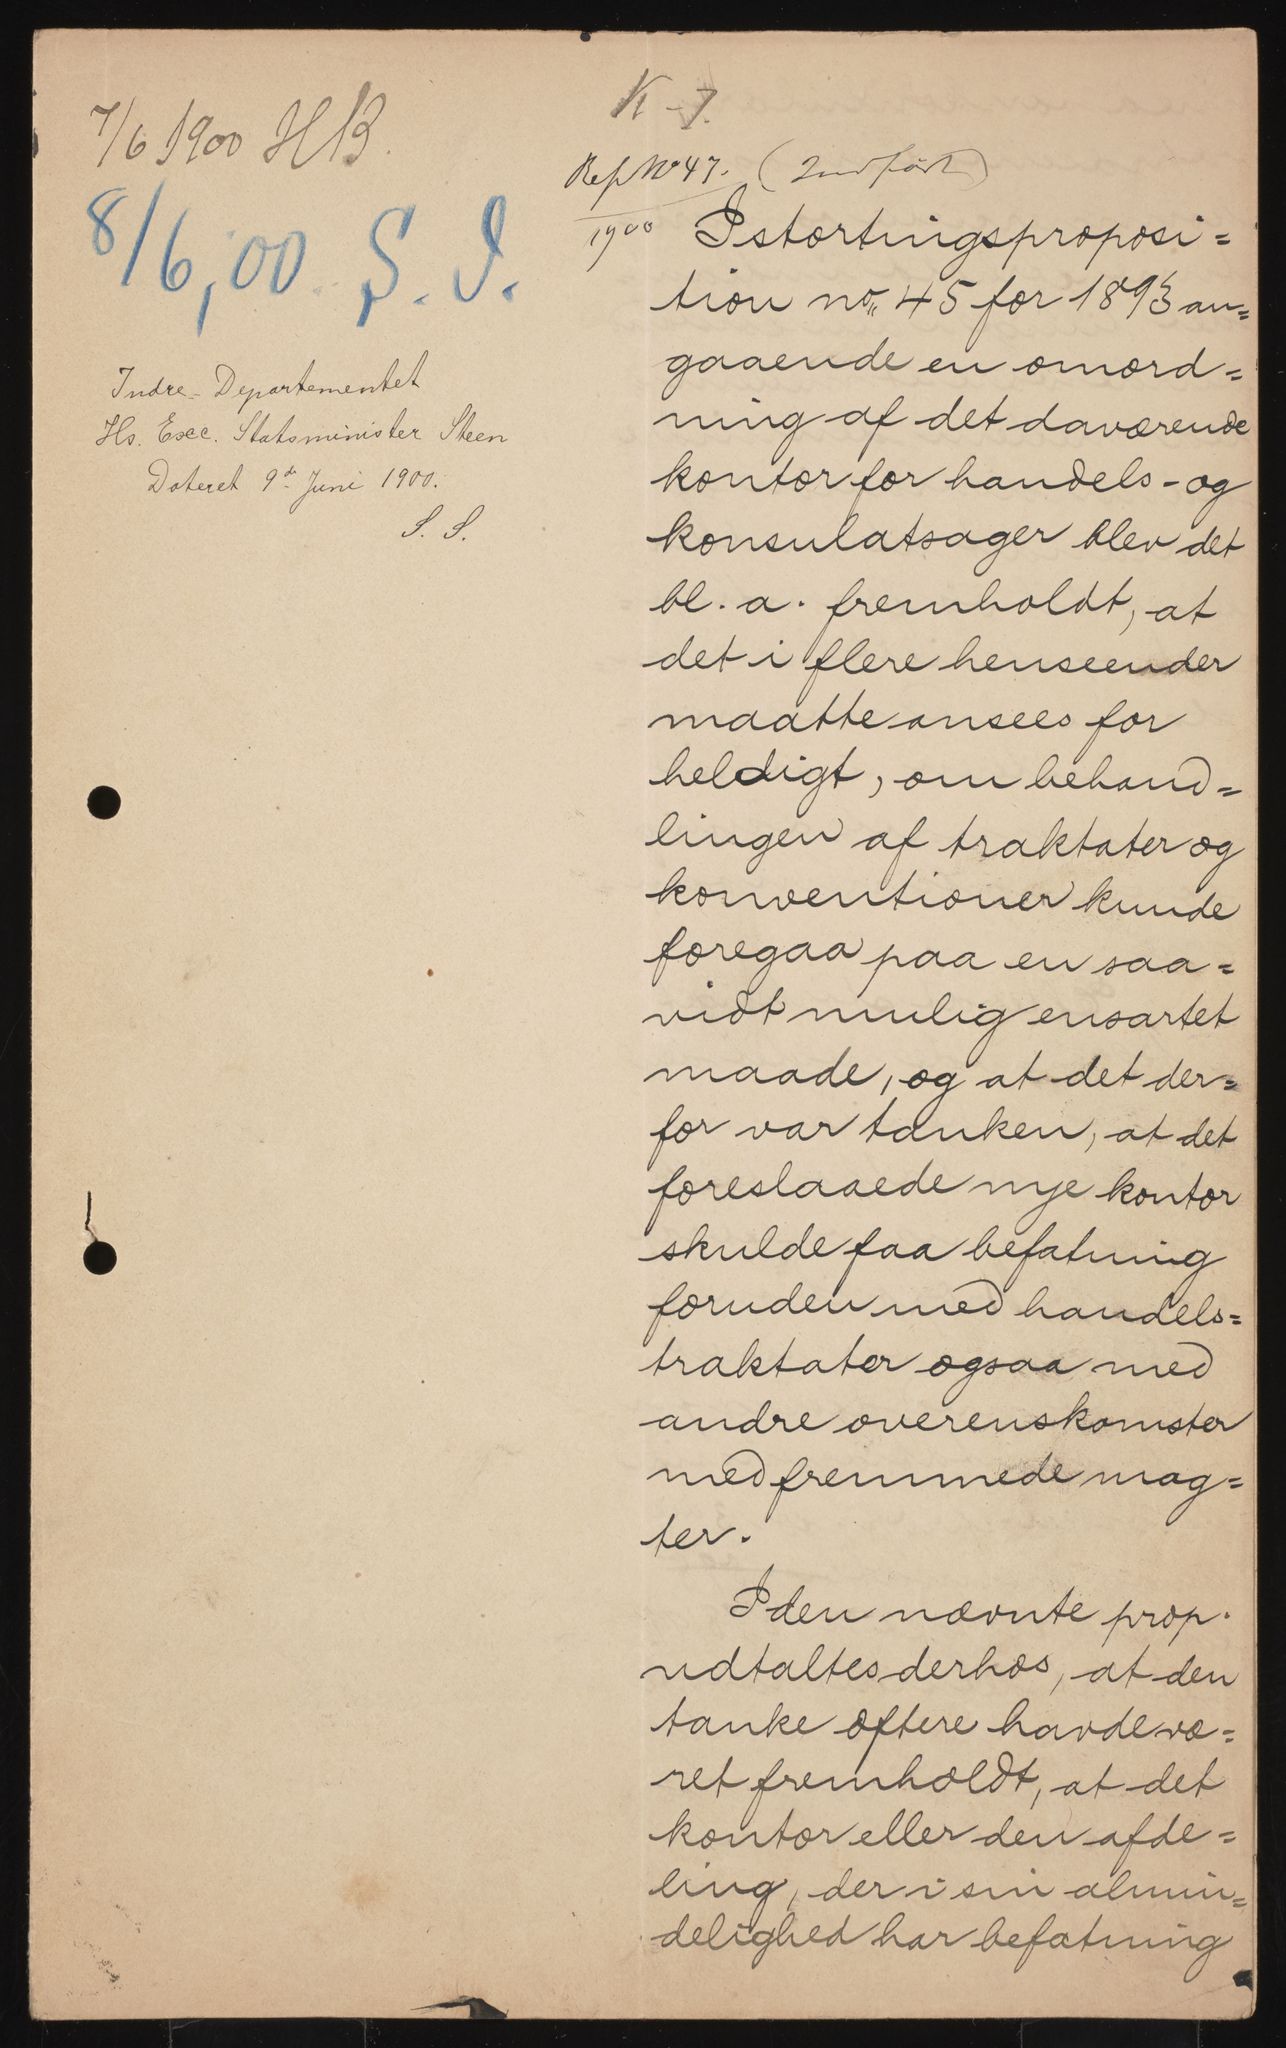 7/6 1900 HB.
8/6,00. S. I.
Indre-Departementet
Hs. Exc. Statsminister Steen
Dateret 9de Juni 1900.
S. S.
K-7.
Ref No 47. (Indført)
1900
I stortingsproposi=
tion no. 45 for 1893 an=
gaaende en omord=
ning af det daværende
kontor for handels- og
konsulatsager blev det
bl. a. fremholdt, at
det i flere henseender
maatte ansees for
heldigt, om behand=
lingen af traktater og
konventioner kunde
foregaa paa en saa=
vidt mulig ensartet
maade, og at det der=
for var tanken, at det
foreslaaede nye kontor
skulde faa befatning
foruden med handels=
traktater ogsaa med
andre overenskomster
med fremmede mag=
ter.
I den nævnte prop.
udtaltes derhos, at den
tanke oftere havde væ=
ret fremholdt, at det
kontor eller den afde=
ling, der i sin almin=
delighed har befatning